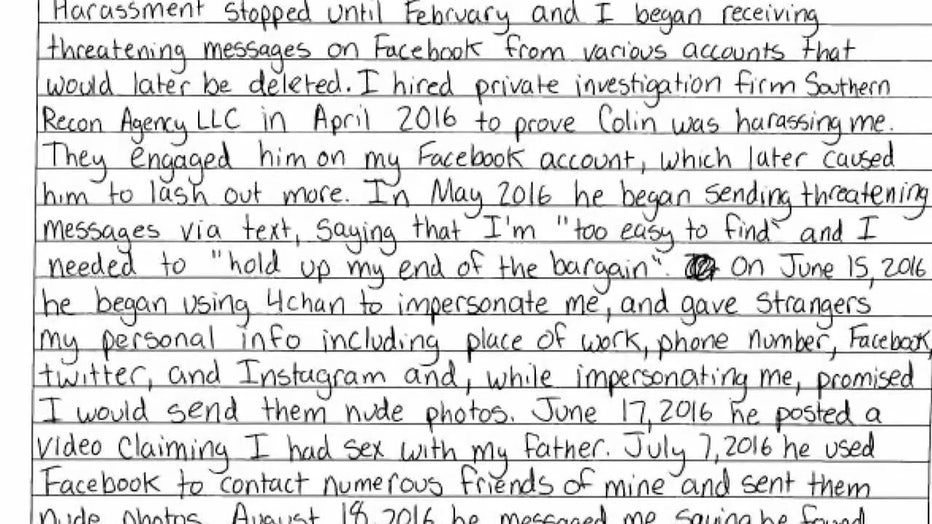 Harassment stopped until February and I began receiving
threatening messages on Facebook from various accounts that
would later be deleted. I hired private investigation firm Southern
Recon Agency LLC in April 2016 to prove Colin was harassing me.
They engaged him on my Facebook account, which later caused
him to lash out more. In May 2016 he began sending threatening
messages via text, saying that I'm "too easy to find" and I
needed to "hold up my end of the bargain". On June 15, 2016
he began using 4chan to impersonate me, and gave strangers
my personal info including place of work, phone number, Facebook,
twitter, and Instagram and, while impersonating me, promised
I would send them nude photos. June 17, 2016 he posted a
video claiming I had sex with my father. July 7, 2016 he used
Facebook to contact numerous friends of mine and sent them
nude photos. August 18, 2016 he messaged me saying he found